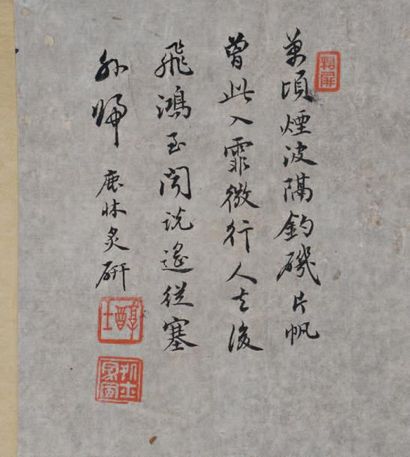 萬頃煙波隔釣磯片帆
曾此入霏微行人去後
飛鴻至聞説遙從塞
外歸 鹿牀炙研
醇士